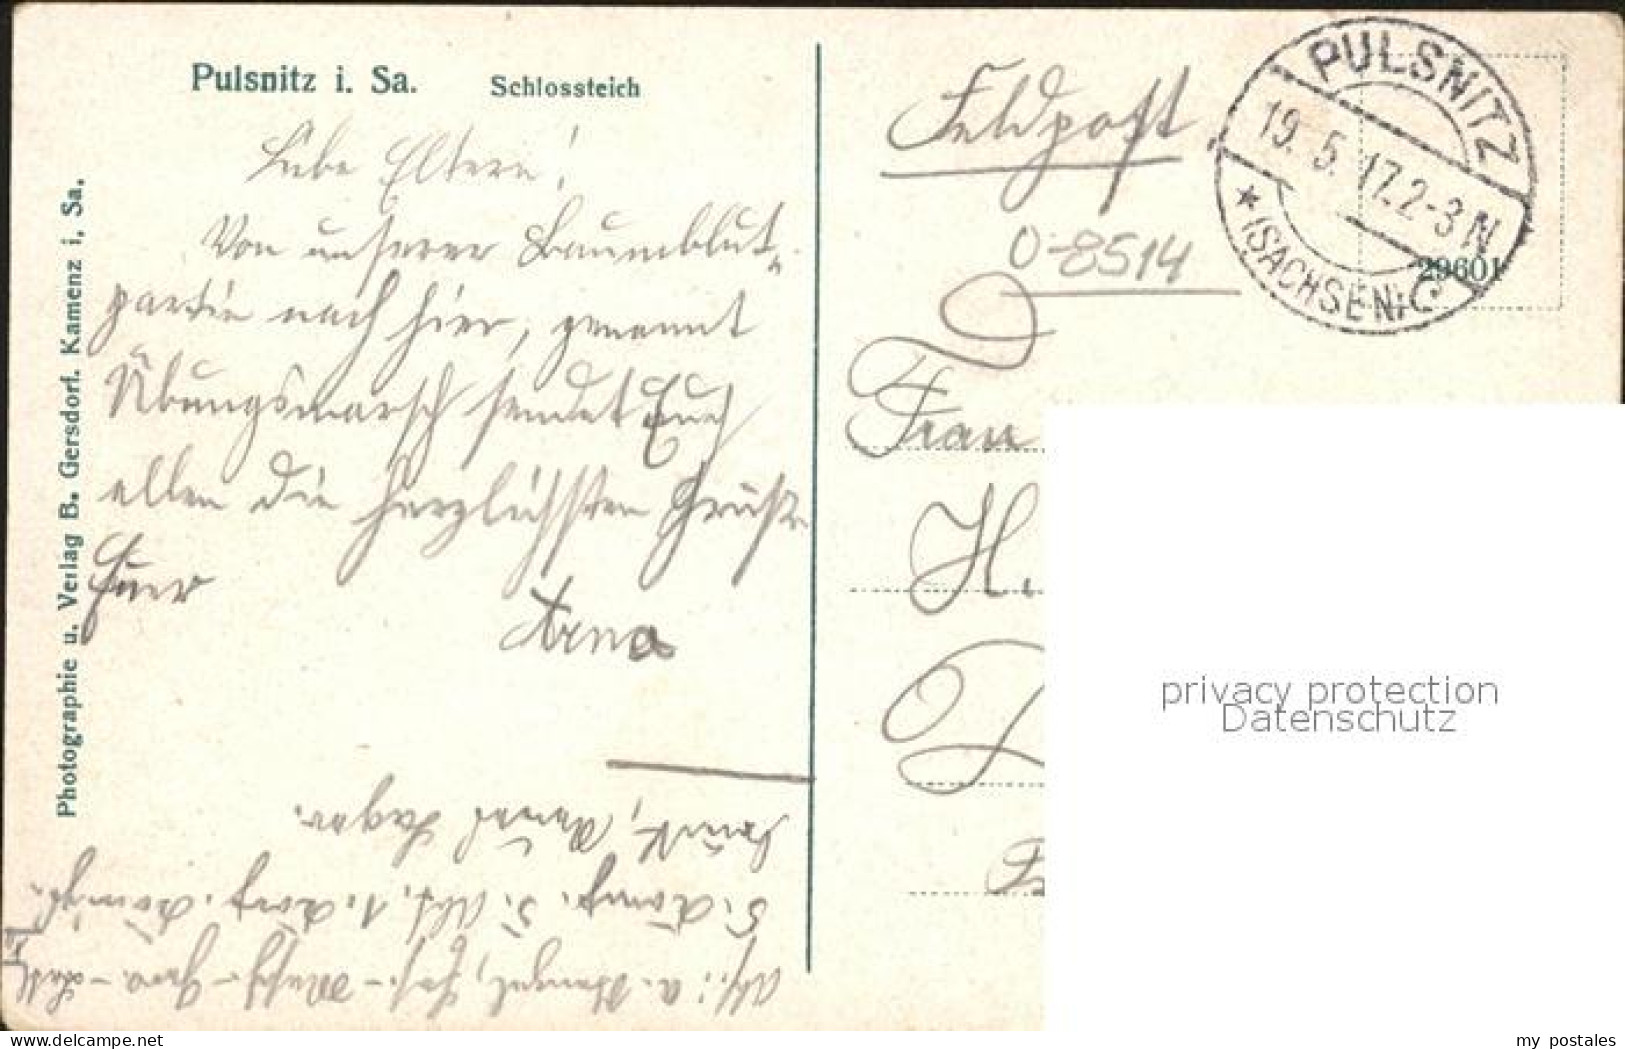 Pulsnitz i. Sa. Schlossteich
Photographie u. Verlag B. Gersdorf. Kamenz i. Sa.
Liebe Eltern!
Von unserer Baumblut-
partie nach hier, genannt
Übungsmarsch sendet Euch
allen die herzlichsten Grüße
Euer
Arno
Feldpost
0-8514
PULSNITZ
19. 5. 17. 2-3 N
* (SACHSEN) C
29601
Frau
H.
Lager.
5. Komp. 1.
privacy protection
Datenschutz
bamecor@hotmail.com
my postales